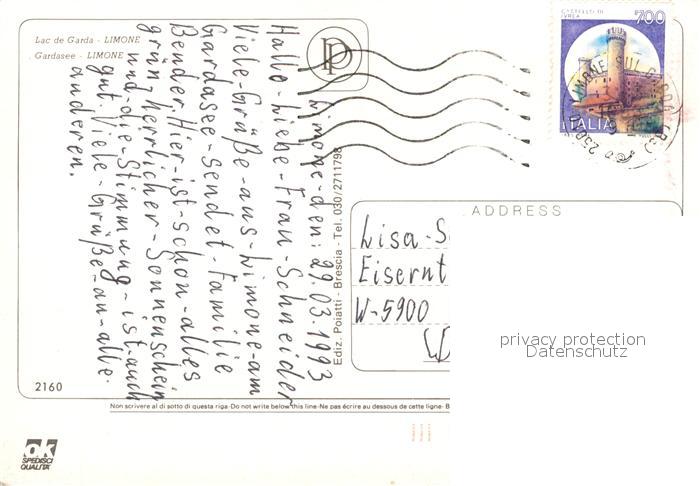 Lac de Garda - LIMONE
Gardasee - LIMONE
PP
CASTELLO DI
IVREA
700
ITALIA
LIMONE SUL GARDA
Limone-den: 29.03.1993
Hallo-Liebe-Frau-Schneider
Viele-Grüße-aus-Limone-am
Gardasee-sendet-Familie
Bender. Hier-ist-schon-alles
grün, herrlicher-Sonnenschein
und-die-Stimmung-ist-auch
gut. Viele-Grüße-an-alle-
anderen.
Ediz. Poiatti - Brescia - Tel. 030/2711798
ADDRESS
Lisa-S
Eisernt
W-5900
privacy protection
Datenschutz
2160
Non scrivere al di sotto di questa riga-Do not write below this line-Ne pas écrire au dessous de cette ligne- B
ok
SPEDISCI
QUALITA'